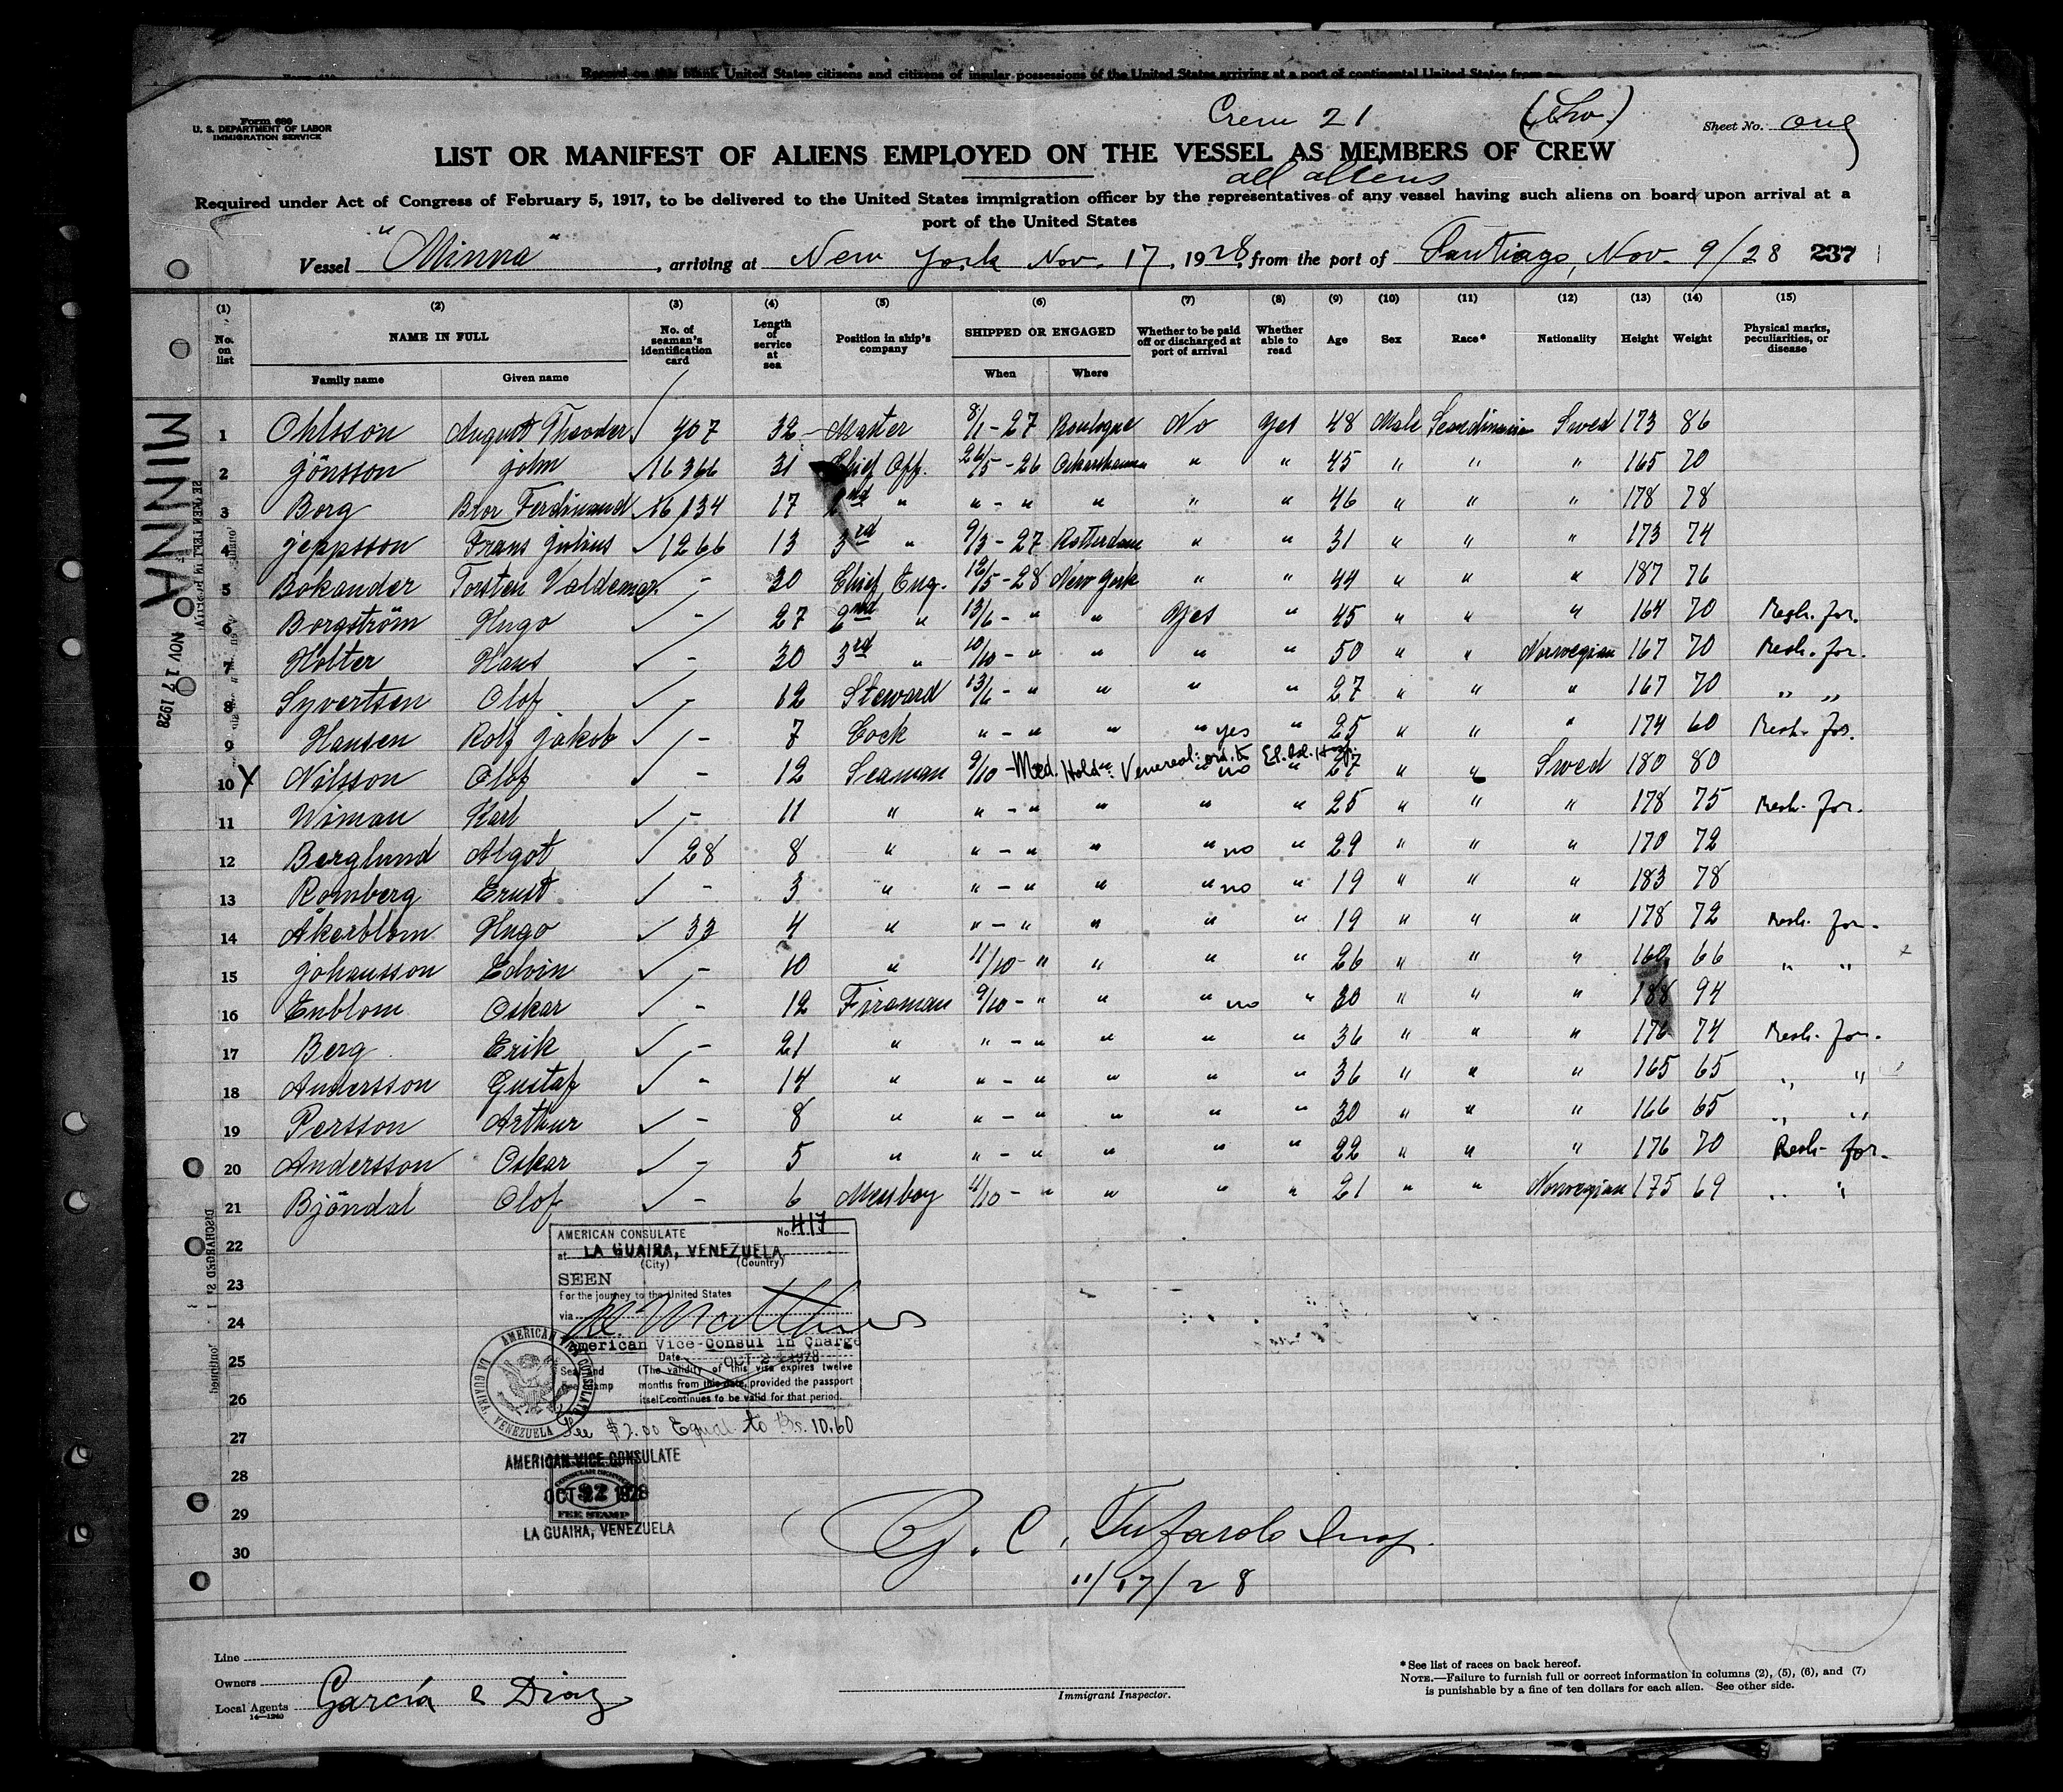 Record on this blank United States citizens and citizens of insular possessions of the United States arriving at a port of continental United States from
Form 680
U. S. DEPARTMENT OF LABOR
IMMIGRATION SERVICE
Crew 21
Sheet No. one
LIST OR MANIFEST OF ALIENS EMPLOYED ON THE VESSEL AS MEMBERS OF CREW
all aliens
Required under Act of Congress of February 5, 1917, to be delivered to the United States immigration officer by the representatives of any vessel having such aliens on board upon arrival at a
port of the United States
Vessel "Minna", arriving at New York Nov. 17, 1928, from the port of Santiago, Nov. 9/28 237
(1) (2) (3) (4) (5) (6) (7) (8) (9) (10) (11) (12) (13) (14) (15)
No. on list NAME IN FULL No. of seaman's identification card Length of service at sea Position in ship's company SHIPPED OR ENGAGED Whether to be paid off or discharged at port of arrival Whether able to read Age Sex Race* Nationality Height Weight Physical marks, peculiarities, or disease
Family name Given name When Where
1 Ohlsson August Theodor √ 407 32 - Master 8/1 - 27 Boulogne No Yes 48 Male Scandinavian Swed 173 86
2 Jönsson John √ 16366 31 Chief Off. 26/5 - 26 " " 45 " " " 165 70
3 Borg Bror Ferdinand √ 16134 17 2nd " " - " " " " 46 " " " 178 78
4 Jeppsson Frans Julius √ 1266 13 3rd " 9/3 - 27 Rotterdam " " 31 " " " 173 74
5 Bokander Torsten Valdemar √ - 30 Chief Eng. 12/5 - 28 New York " " 44 " " " 187 76
6 Borgström Hugo √ - 27 2nd " 13/6 - " " Yes " 45 " " " 164 70 Resh. for.
7 Holter Hans √ - 30 3rd " 10/10 - " " " " 50 " " Norwegian 167 70 Resh. for.
8 Syvertsen Olof √ - 12 Steward 13/6 - " " " " 27 " " " 167 70 " "
9 Hansen Rolf Jakob √ - 7 Cock " - " " " yes " 25 " " " 174 60 Resh. for.
10 X Nilsson Olof √ - 12 Seaman 9/10 - Med. Hold: Venereal: ord. to El. Isl. Hosp. " no " 27 " " Swed 180 80
11 Wiman Karl √ - 11 " " - " " " " 25 " " " 178 75 Resh. for.
12 Berglund Algot √ 28 8 " " - " " " no " 29 " " " 170 72
13 Romberg Ernst √ - 3 " " - " " " no " 19 " " " 183 78
14 Åkerblom Hugo √ 33 4 " " - " " " " 19 " " " 178 72 Resh. for.
15 Johansson Edvin √ - 10 " 11/10 - " " " " 26 " " " 160 66 " "
16 Enblom Oskar √ - 12 Fireman 9/10 - " " " no " 30 " " " 188 94
17 Berg Erik √ - 21 " " - " " " " 36 " " " 176 74 Resh. for.
18 Andersson Gustaf √ - 14 " " - " " " " 36 " " " 165 65 " "
19 Persson Arthur √ - 8 " " - " " " " 30 " " " 166 65 " "
20 Andersson Oskar √ - 5 " " - " " " " 22 " " " 176 70 Resh. for.
21 Bjöndal Olof √ - 6 Messboy 11/10 - " " " " 21 " " Norwegian 175 69 " "
22
23
24
25
26
27
28
29
30
MINNA
NOV 17 1928
AMERICAN CONSULATE No. 417
at LA GUAIRA, VENEZUELA
(City) (Country)
SEEN
For the journey to the United States
via
American Vice-Consul in Charge
Date OCT 24 1928
Seal and Fee Stamp
(The validity of this visa expires twelve
months from this date, provided the passport
itself continues to be valid for that period.
AMERICAN CONSULATE
LA GUAIRA, VENEZUELA
Fee $2.00 Equal to Bs. 10.60
AMERICAN VICE CONSULATE
CONSULAR SERVICE
OCT 1928
FEE STAMP
LA GUAIRA, VENEZUELA
G. C. Tufarolo Insp.
11/17/28
Line
Owners
Local Agents García & Diaz
14—1240
Immigrant Inspector.
*See list of races on back hereof.
NOTE.—Failure to furnish full or correct information in columns (2), (5), (6), and (7)
is punishable by a fine of ten dollars for each alien. See other side.